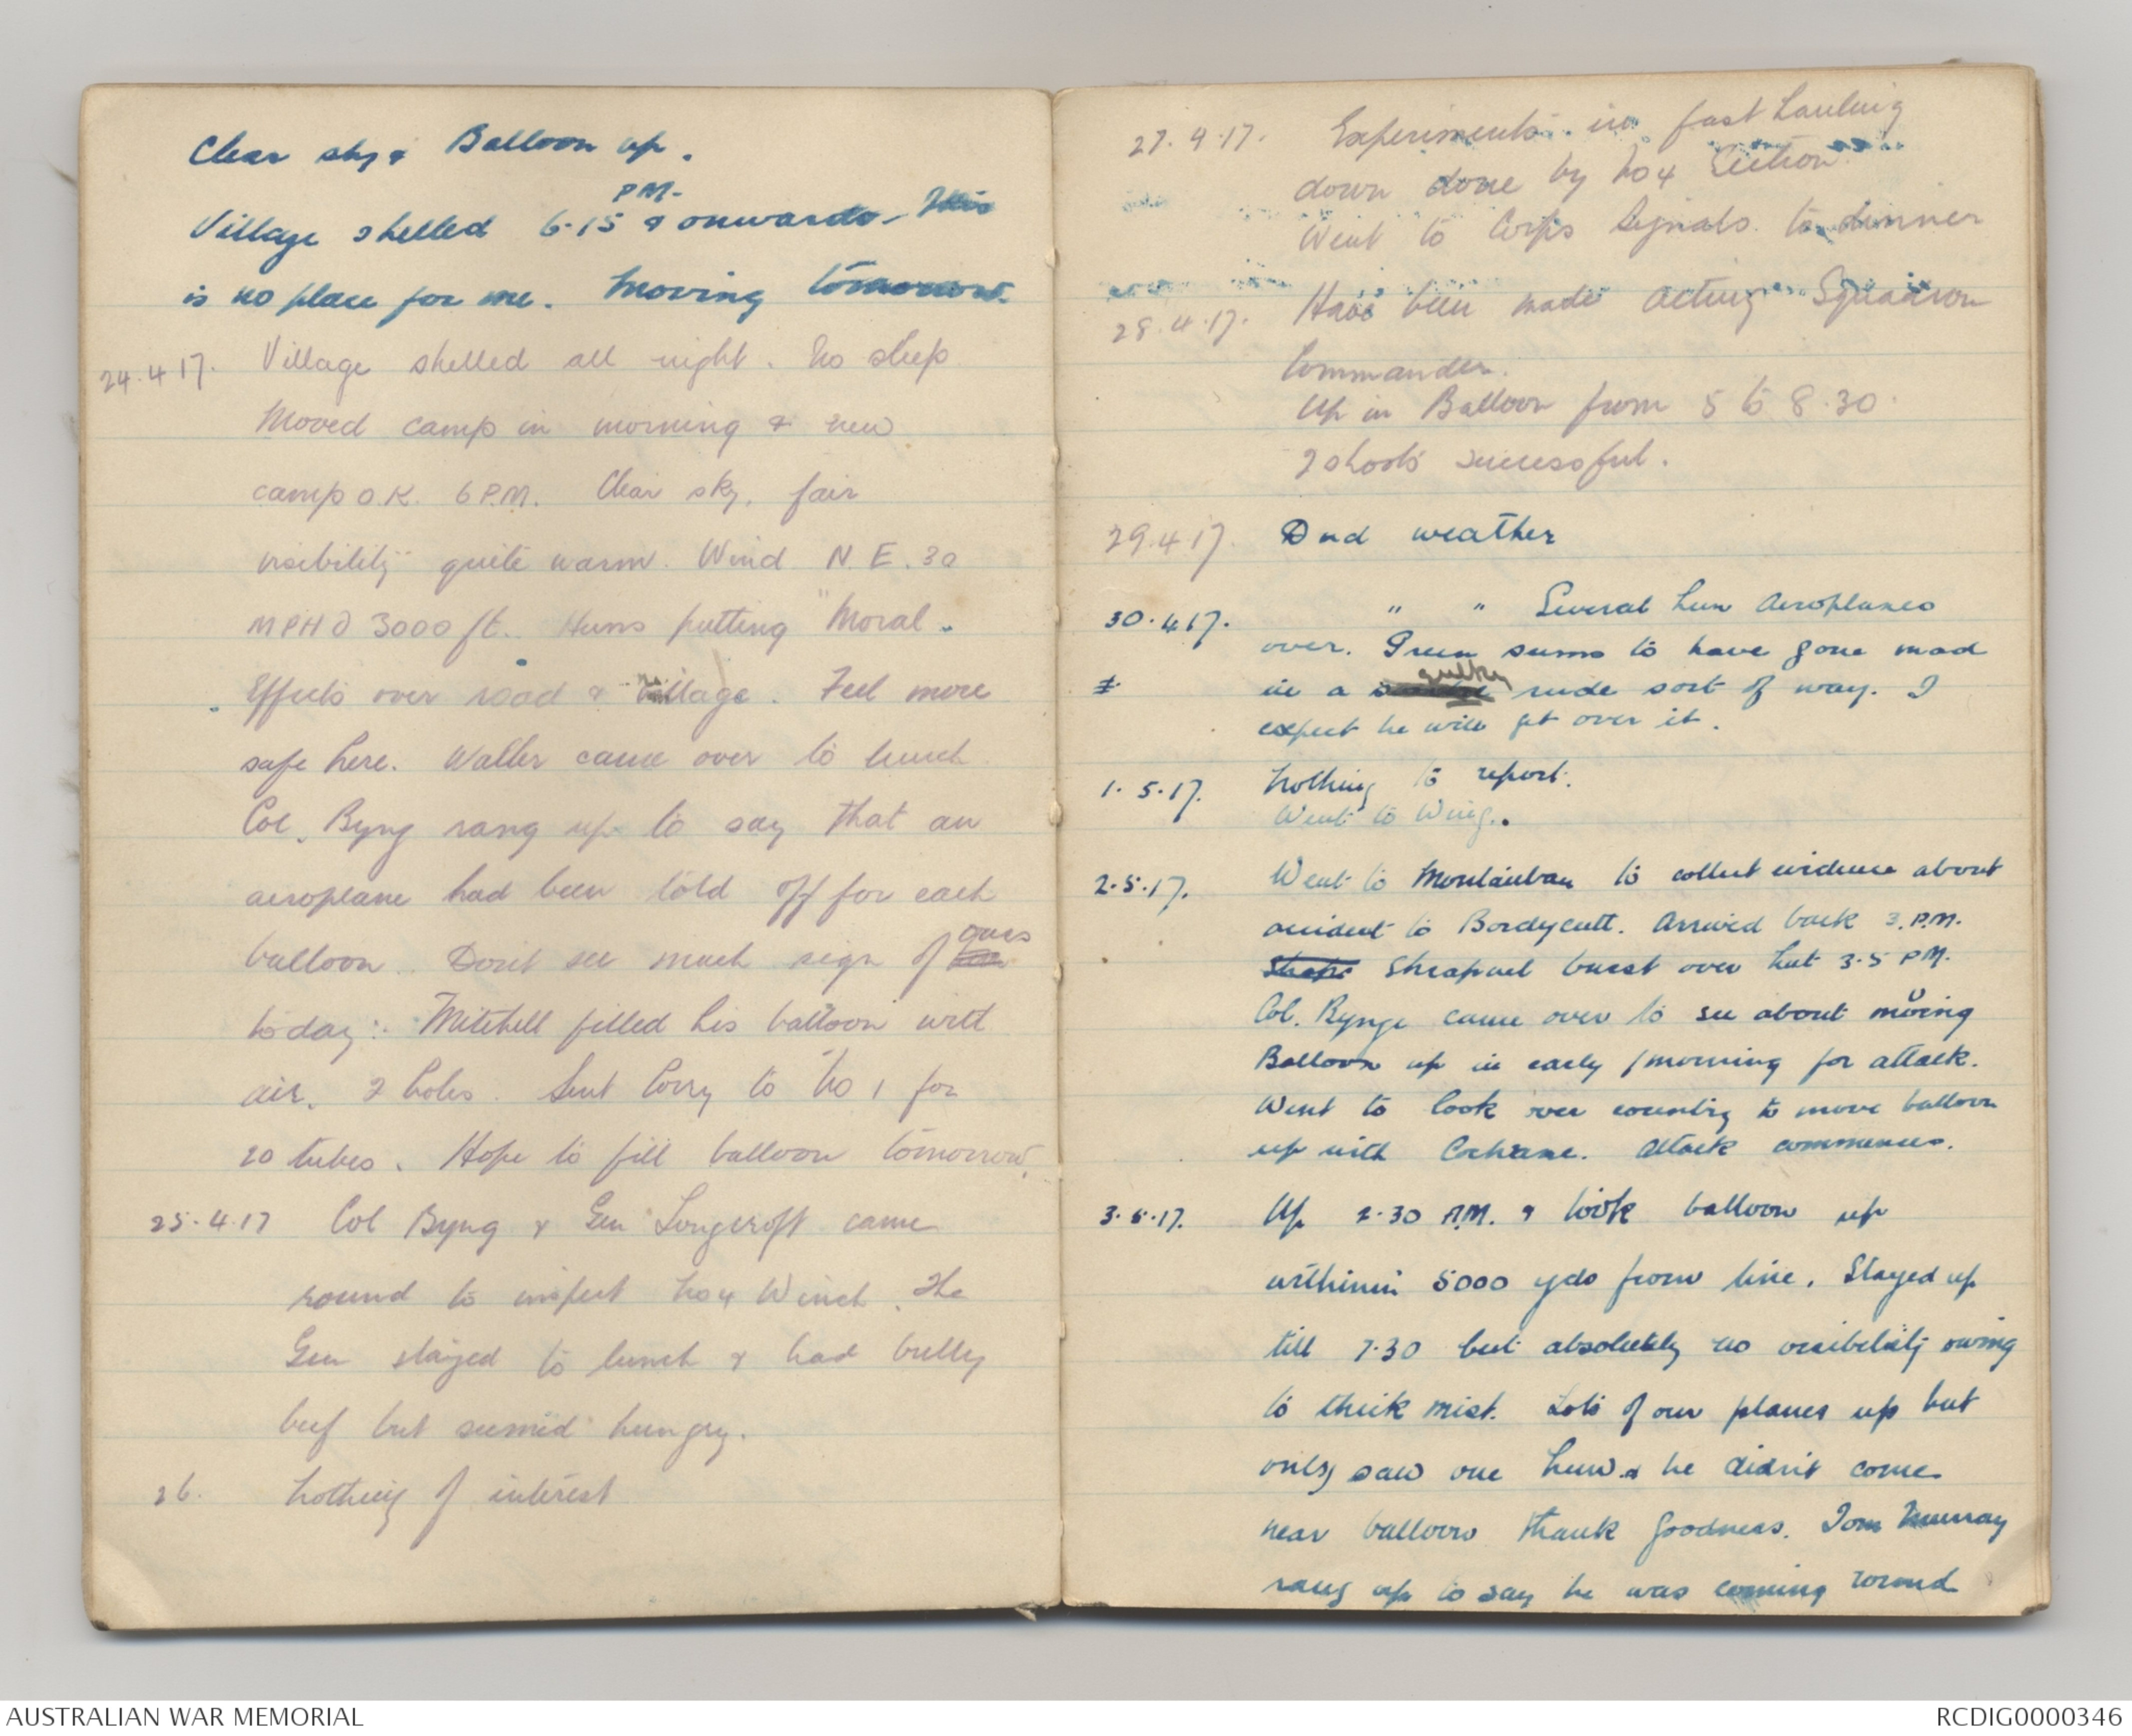 Clear sky & Balloon up.
PM.
Village shelled 6.15 & onwards. This
is no place for me. Moving tomorrow.
24.4.17. Village shelled all night. No sleep
Moved camp in morning & new
camp O.K. 6 P.M. Clear sky, fair
visibility quite warm. Wind N.E. 30
MPH @ 3000 ft. Huns putting "Moral
Effects over road & village. Feel more
safe here. Waller came over to lunch
Col. Byng rang up to say that an
aeroplane had been told off for each
ours
balloon. Dont see much sign of
today. Mitchell filled his balloon with
air. 2 holes. Sent lorry to No 1 for
20 tubes. Hope to fill balloon tomorrow.
25.4.17 Col Byng & Gen Longcroft came
round to inspect No 4 Winch. The
Gen stayed to lunch & had bully
beef but seemed hungry.
26. Nothing of interest
27.4.17. Experiments in fast hauling
down done by No 4 Section
Went to Corps Signals to dinner
28.4.17. Have been made acting Squadron
Commander.
Up in Balloon from 5 to 8.30.
2 shoots successful.
29.4.17. Dud weather
30.4.17. " " Several hun Aeroplanes
over. Green seems to have gone mad
in a sulky rude sort of way. I
expect he will get over it.
1.5.17. Nothing to report.
Went to Wing.
2.5.17. Went to Montauban to collect evidence about
accident to Bordycutt. Arrived back 3.P.M.
Shrapnel burst over hut 3.5 PM.
Col. Bynge came over to see about moving
Balloon up in early morning for attack.
Went to look over country to move balloon
up with Cochrane. Attack commences.
3.5.17. Up 2.30 A.M. & took balloon up
within 5000 yds from line. Stayed up
till 7.30 but absolutely no visibility owing
to thick mist. Lots of our planes up but
only saw one hun & he didn't come
near balloon thank goodness. Tom Murray
rang up to say he was coming round
AUSTRALIAN WAR MEMORIAL
RCDIG0000346